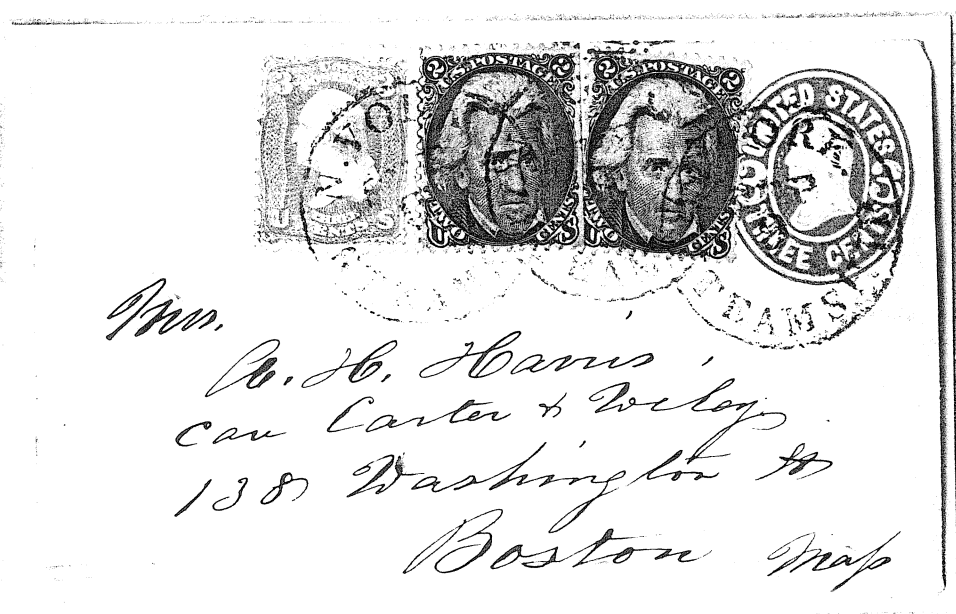 U.S. POSTAGE
2 2
TWO CENTS
U S
U.S. POSTAGE
2 2
TWO CENTS
U S
UNITED STATES
3 3
THREE CENTS
N.YO
STEAMSH
Mrs.
A. H. Harris,
care Carter & Wiley
138 Washington St
Boston Mass